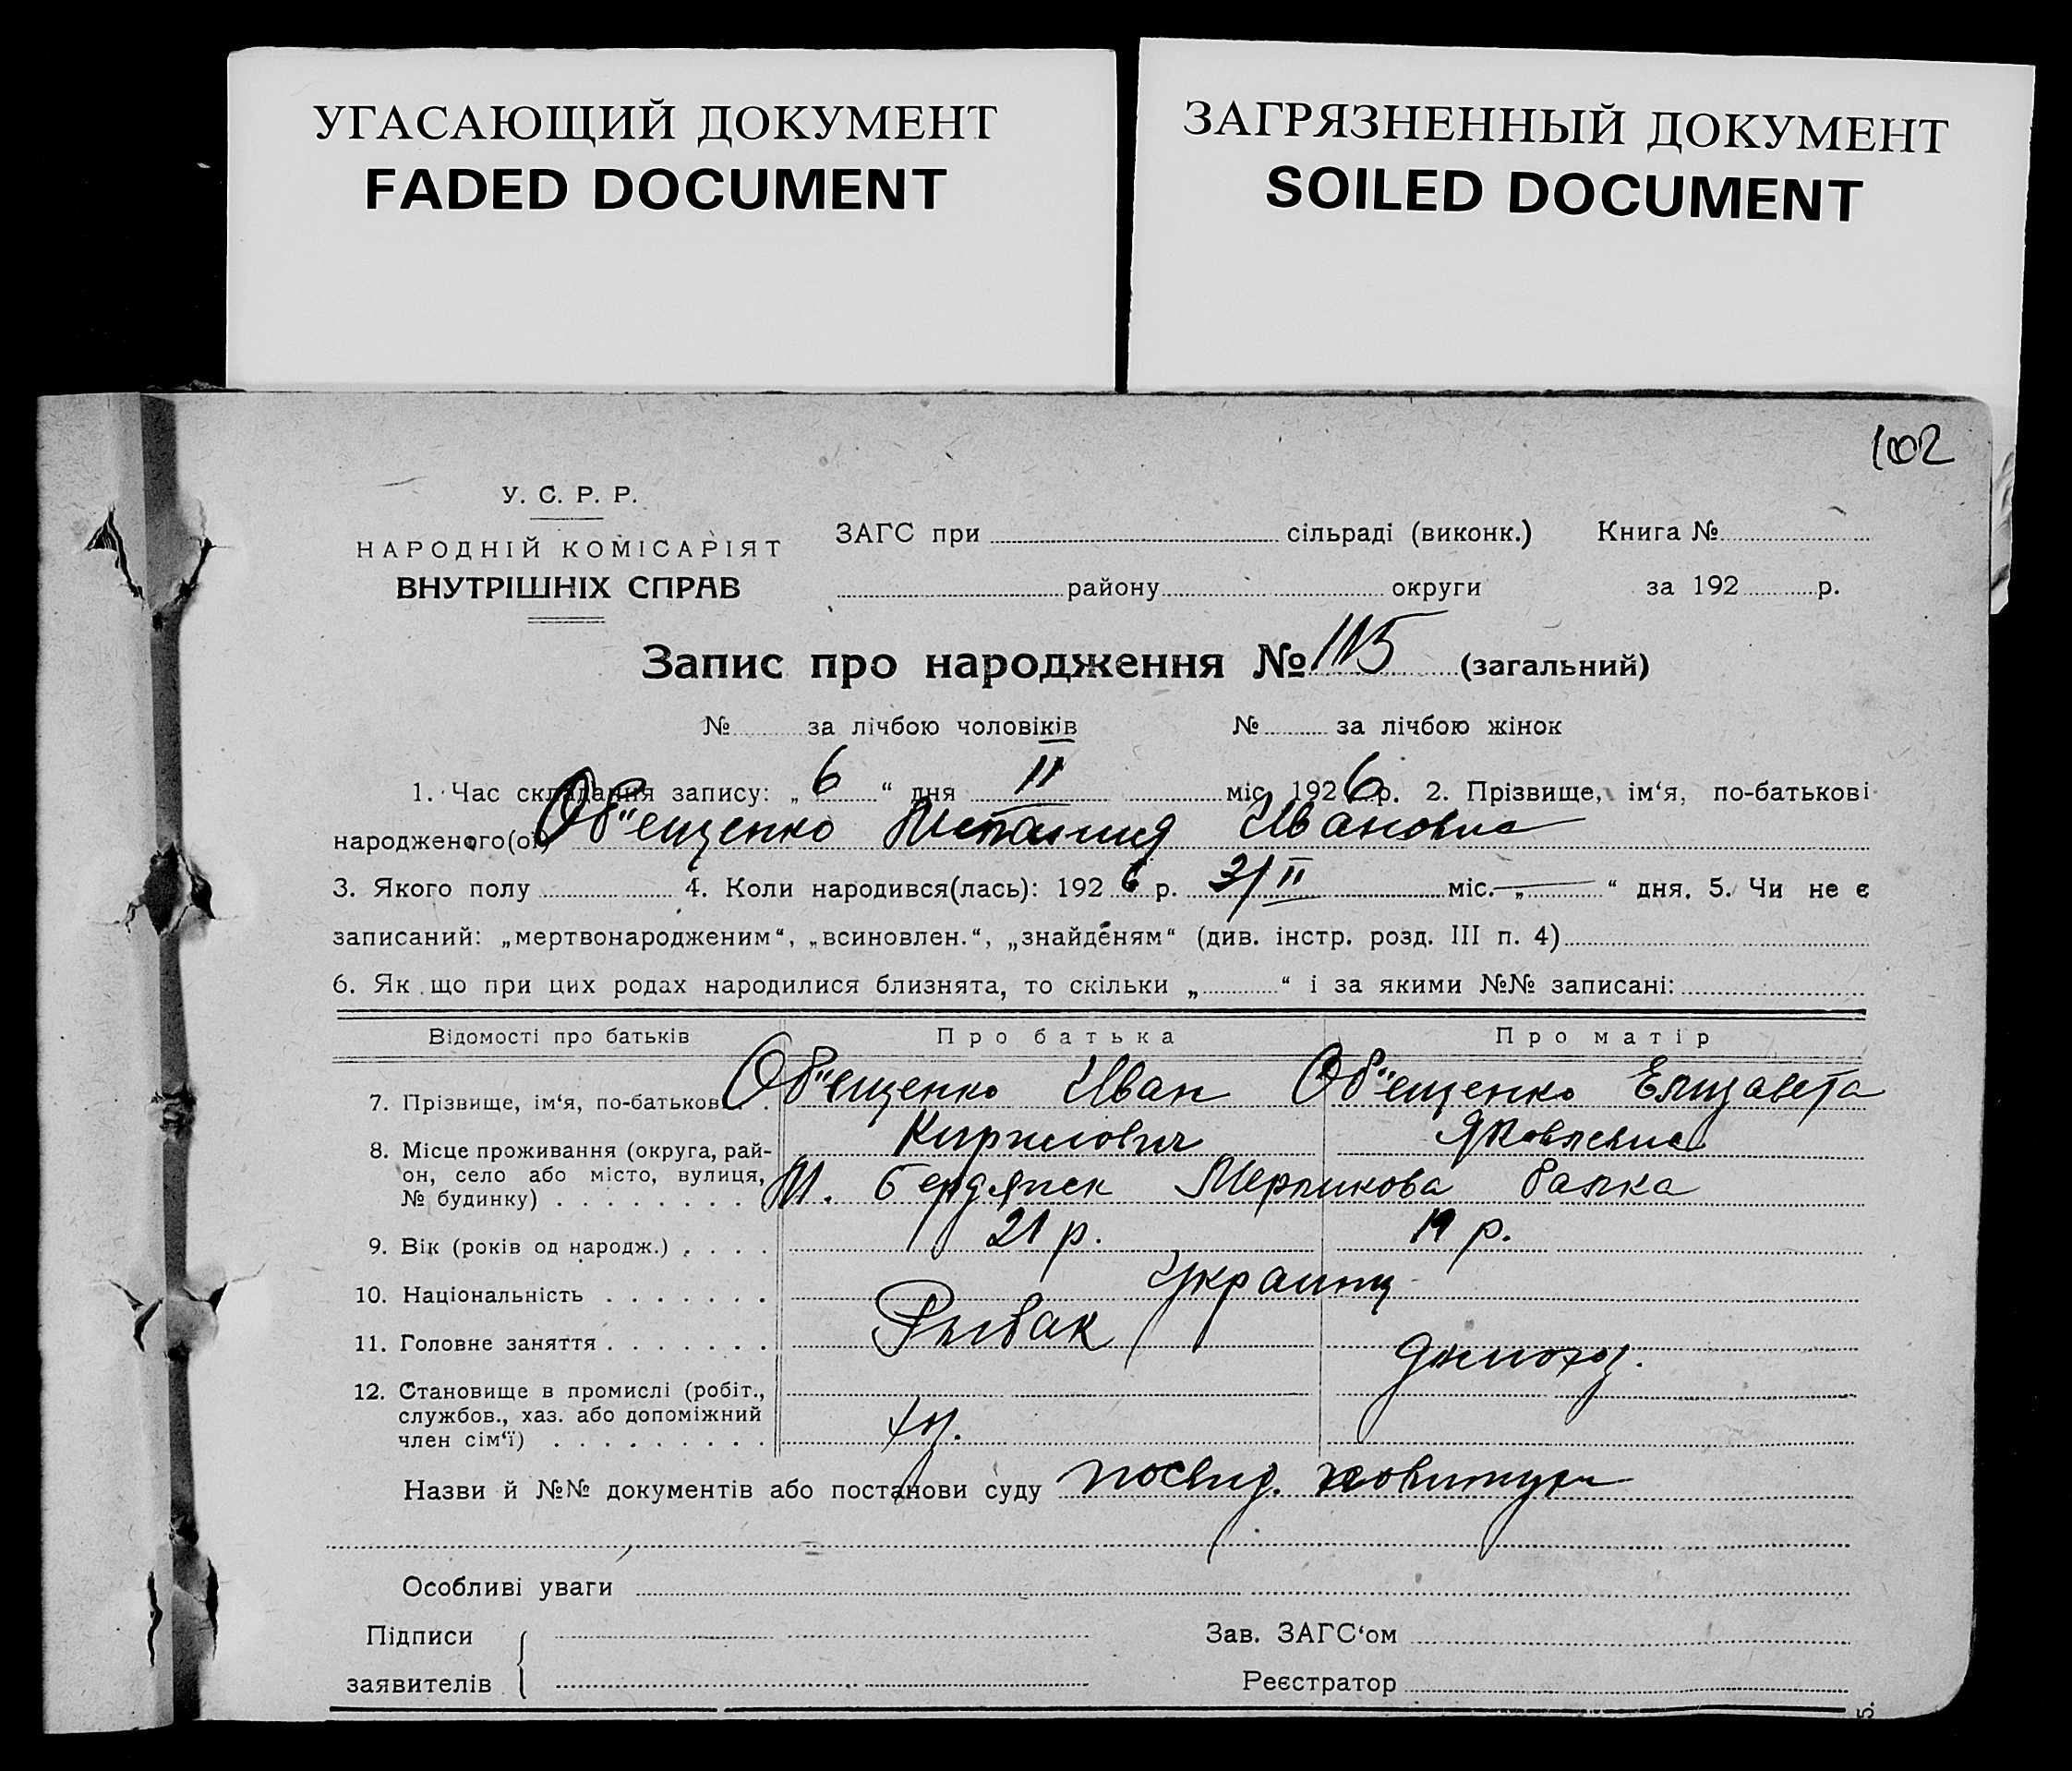 УГАСАЮЩИЙ ДОКУМЕНТ
FADED DOCUMENT
ЗАГРЯЗНЕННЫЙ ДОКУМЕНТ
SOILED DOCUMENT
102
У. С. Р. Р.
НАРОДНІЙ КОМІСАРІЯТ
ВНУТРІШНІХ СПРАВ
ЗАГС при сільраді (виконк.) Книга №
району округи за 192 р.
Запис про народження № 115 (загальний)
№ за лічбою чоловіків № за лічбою жінок
1. Час складання запису: „ 6 “ дня II міс. 192 6 р. 2. Прізвище, ім‘я, по-батькові
народженого(ої) Об"ещенко Ивановна
3. Якого полу 4. Коли народився(лась): 192 6 р. 3/II міс. „ — “ дня. 5. Чи не є
записаний: „мертвонародженим“, „всиновлен.“, „знайденям“ (див. інстр. розд. III п. 4)
6. Як що при цих родах народилися близнята, то скільки „ “ і за якими №№ записані:
Відомості про батьків Про батька Про матір
7. Прізвище, ім‘я, по-батькові . . Об"ещенко Иван Об"ещенко Елизавета
Кирилович Яковлевна
8. Місце проживання (округа, рай-
он, село або місто, вулиця,
№ будинку) . . . . . . . . М. Бердянск Мерликова балка
9. Вік (років од народж.) . . . . 21 р. 19 р.
10. Національність . . . . . . . Украинц
11. Головне заняття . . . . . . . Рыбак домохоз.
12. Становище в промислі (робіт.,
службов., хаз. або допоміжний
член сім‘ї) . . . . . . . . . хоз.
Назви й №№ документів або постанови суду посвид.
Особливі уваги
Підписи
заявителів
Зав. ЗАГС‘ом
Реєстратор
5.